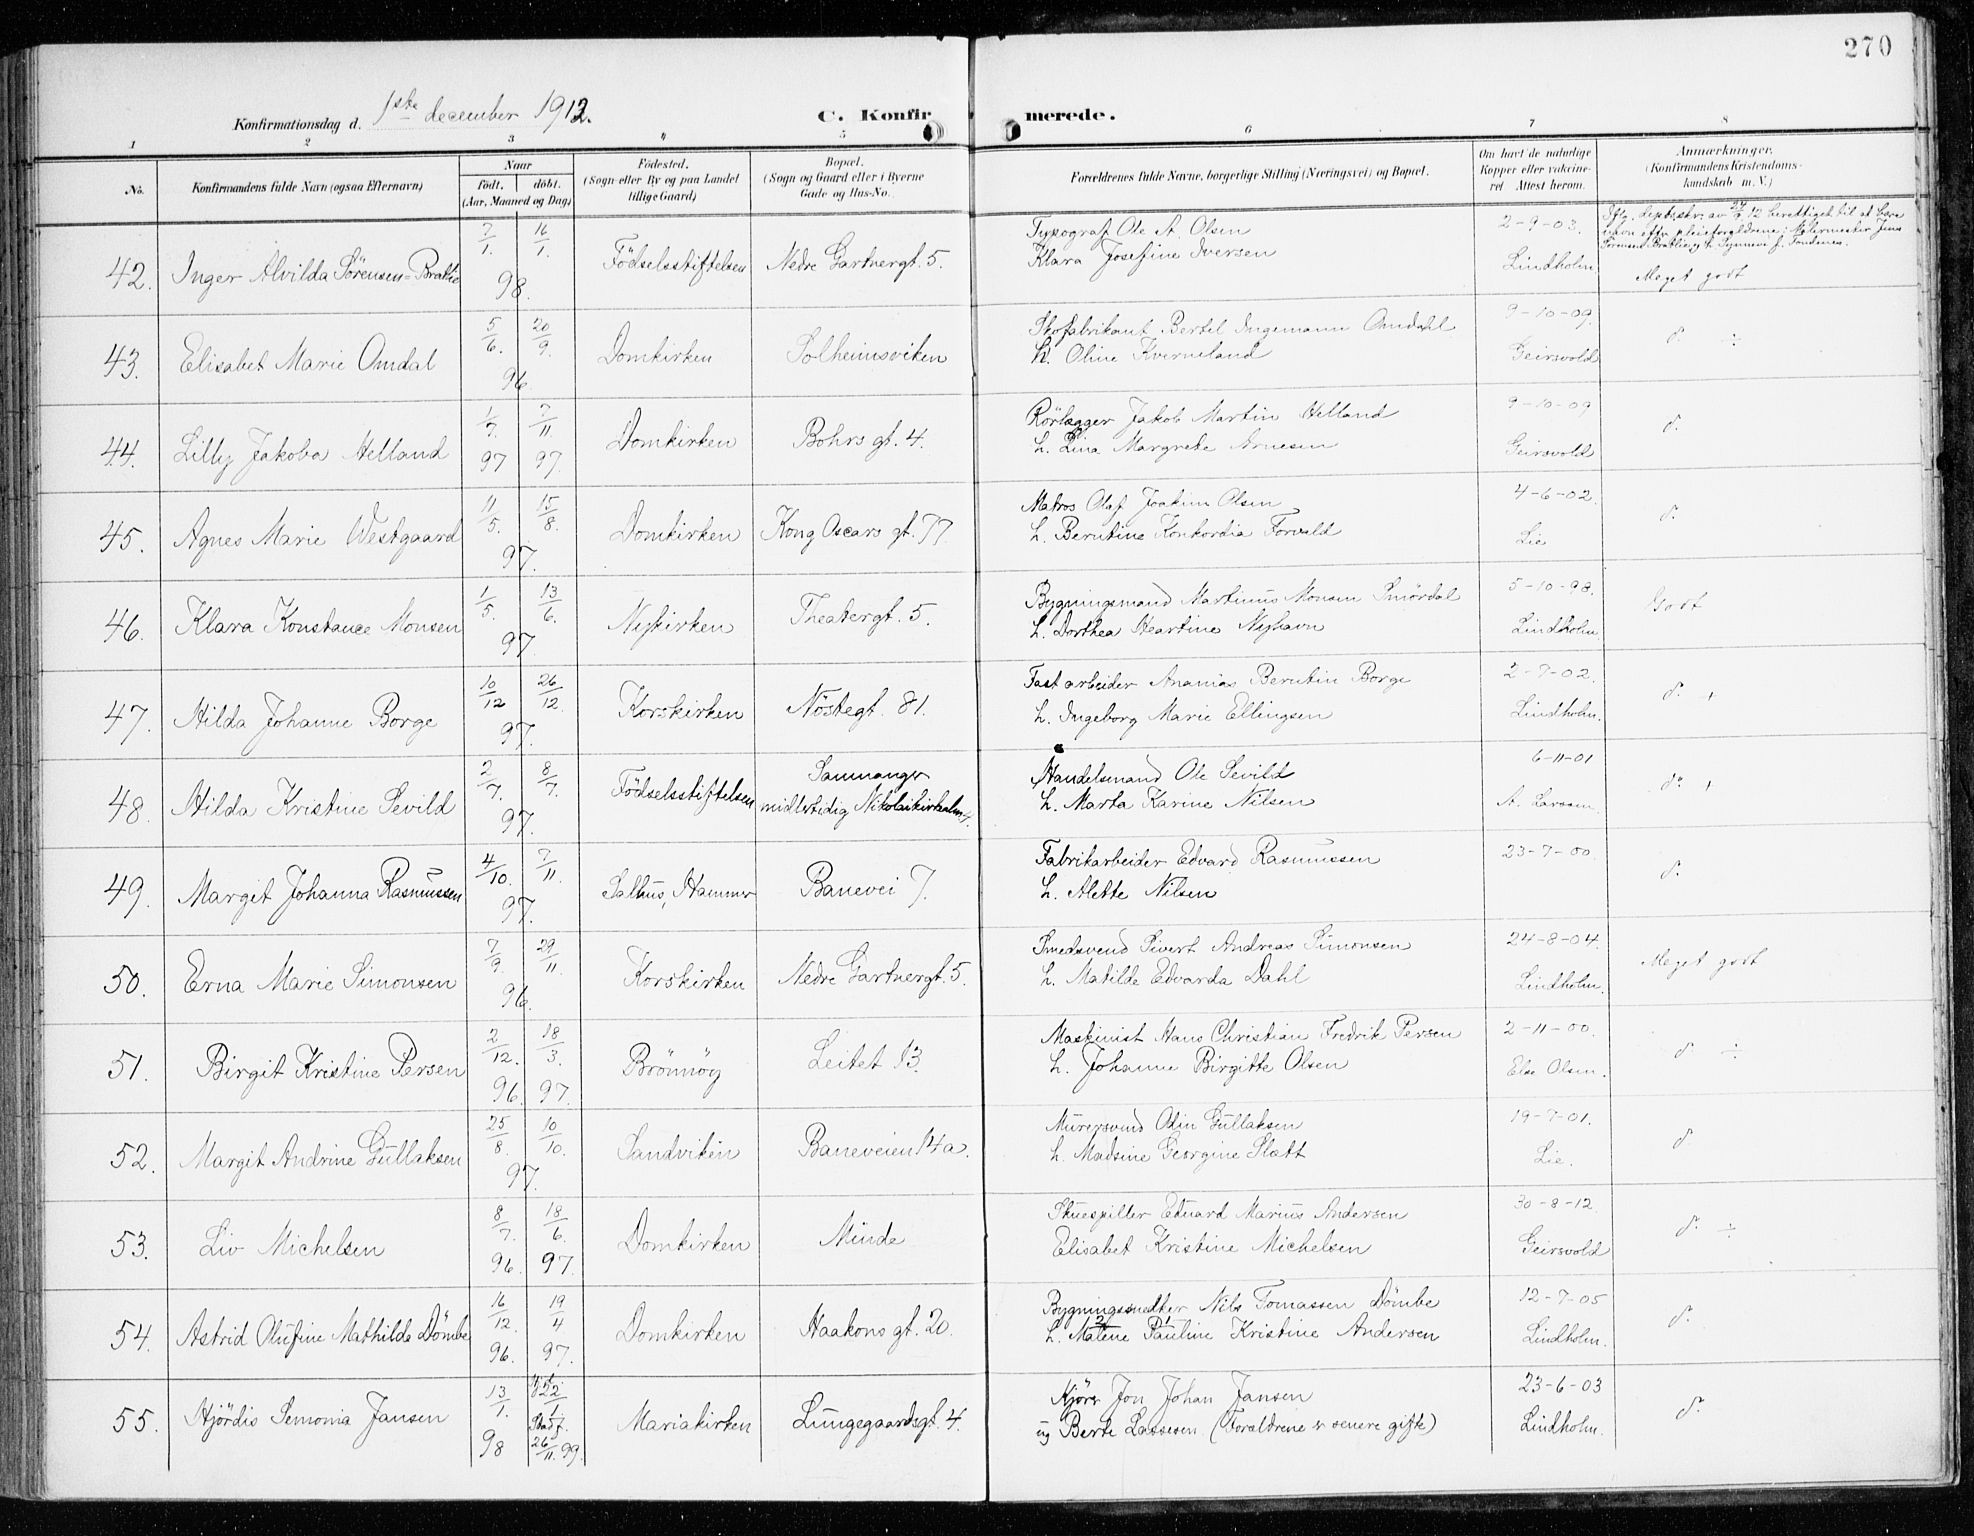 270
Konfirmationsdag d. 1ste december 1912.
C. Konfirmerede.
1 2 3 4 5 6 7 8
No.
Konfirmandens fulde Navn (ogsaa Efternavn)
Naar
født. døbt.
(Aar, Maaned og Dag)
Fødested.
(Sogn eller By og paa Landet
tillige Gaard)
Bopæl.
(Sogn og Gaard eller i Byerne
Gade og Hus-No.
Forældrenes fulde Navne, borgerlige Stilling (Næringsvei) og Bopæl.
Om havt de naturlige
Kopper eller vakcine-
ret Attest herom.
Anmærkninger.
(Konfirmandens Kristendoms-
kundskab m. V.)
42. Inger Alvilda Sörensen-Bratlie 7/1. 16/1. 98. Födselsstiftelsen Nedre Gartnergt. 5.
Typograf Ole A. Olsen
Klara Josefine Iversen
2-9-03.
Lindholm
Meget godt
43. Elisabet Marie Omdal 5/6. 20/9. 96. Domkirken Solheimsviken
Skofabrikant Bertel Ingemann Omdahl
h. Oline Kverneland
9-10-09.
Geirsvold
d. ÷
44. Lilly Jakoba Helland 1/7. 97 7/11. 97. Domkirken Bohrs gt. 4.
Rörlægger Jakob Martin Helland
h. Lina Margrete Arnesen
9-10-09
Geirsvold
d.
45. Agnes Marie Westgaard 11/5. 15/8. 97. Domkirken Kong Oscars gt. 77
Matros Olaf Joakim Olsen
h. Berntine Konkordia Forvald
4-6-02.
Lie
d.
46. Klara Konstance Monsen 1/5. 13/6. 97. Nykirken Theatergt. 5.
Bygningsmand Martinus Monsen Smördal
h. Dorthea Heartine Nyhavn
5-10-98.
Lindholm.
Godt
47. Hilda Johanne Borge 10/12 26/12. 97. Korskirken Nöstegt. 81.
Fast arbeider Ananias Berntin Borge
h. Ingeborg Marie Ellingsen
2-7-02.
Lindholm.
d. +
48. Hilda Kristine Sevild 2/7. 8/7. 97. Födselsstiftelsen Sammanger
midlertidig Nikolaikirkealm.
Handelsmand Ole Sevild
h. Marta Karine Nilsen
6-11-01
A. Larssen.
d. +
49. Margit Johanna Rasmussen 4/10. 7/11. 97. Salhus, Hammer Banevei 7.
Fabrikarbeider Edvard Rasmussen
h. Alette Nilsen
23-7-00.
d.
50. Erna Marie Simonsen 7/9. 29/11. 96. Korskirken Nedre Gartnergt. 5.
Smedsvend Sivert Andreas Simonsen
h. Matilde Edvarda Dahl
24-8-04.
Lindholm.
Meget godt
51. Birgit Kristine Persen 2/12. 96. 18/3. 97. Brönnöy Leitet 13.
Maskinist Hans Christian Fredrik Persen
h. Johanne Birgitte Olsen
2-11-00.
Else Olsen.
d. ÷
52. Margit Andrine Gullaksen 25/8. 10/10. 97. Sandviken Baneveien 14a.
Murersvend Odin Gullaksen
h. Madsine Georgine Slatt
19-7-01.
Lie.
d
53. Liv Michelsen 8/7. 96. 18/6. 97. Domkirken Minde
Skuespiller Eduard Marius Andersen
Elisabet Kristine Michelsen
30-8-12.
Geirsvold
d. ÷
54. Astrid Olufine Mathilde Dömbe 16/12. 96. 19/4. 97. Domkirken Haakons gt. 20.
Bygningssnedker Nils Tomassen Dömbe
h. Malene Pauline Kristine Andersen
12-7-05
Lindholm.
d.
55. Hjördis Semonia Jansen 13/1. 98 22/1 Stadf. 26/11. 99. Mariakirken Lungegaardsgt. 4.
Kjörer Jon Johan Jansen
og Berte Lassesen. (Forældrene er senere gifte)
23-6-03
Lindholm.
d.